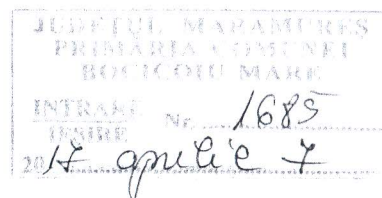 JUDEȚUL MARAMUREȘ
PRIMĂRIA COMUNEI
BOCICOIU MARE
INTRARE
IEȘIRE Nr. 1685
2017 aprilie 7